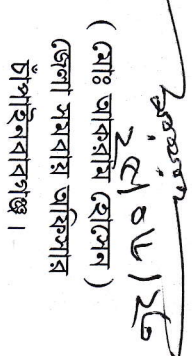 ( মোঃ আকরাম হোসেন )
জেলা সমবায় অফিসার
চাঁপাইনবাবগঞ্জ।